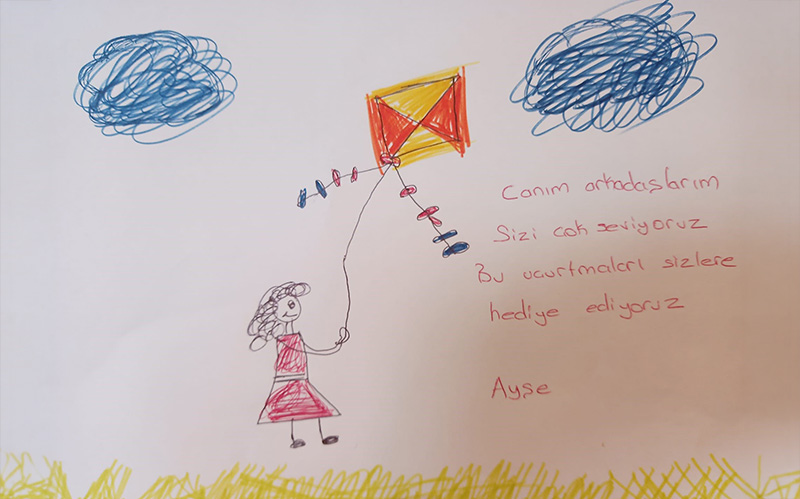 Canım arkadaşlarım
Sizi cok seviyoruz
Bu ucurtmaları sizlere
hediye ediyoruz
Ayşe